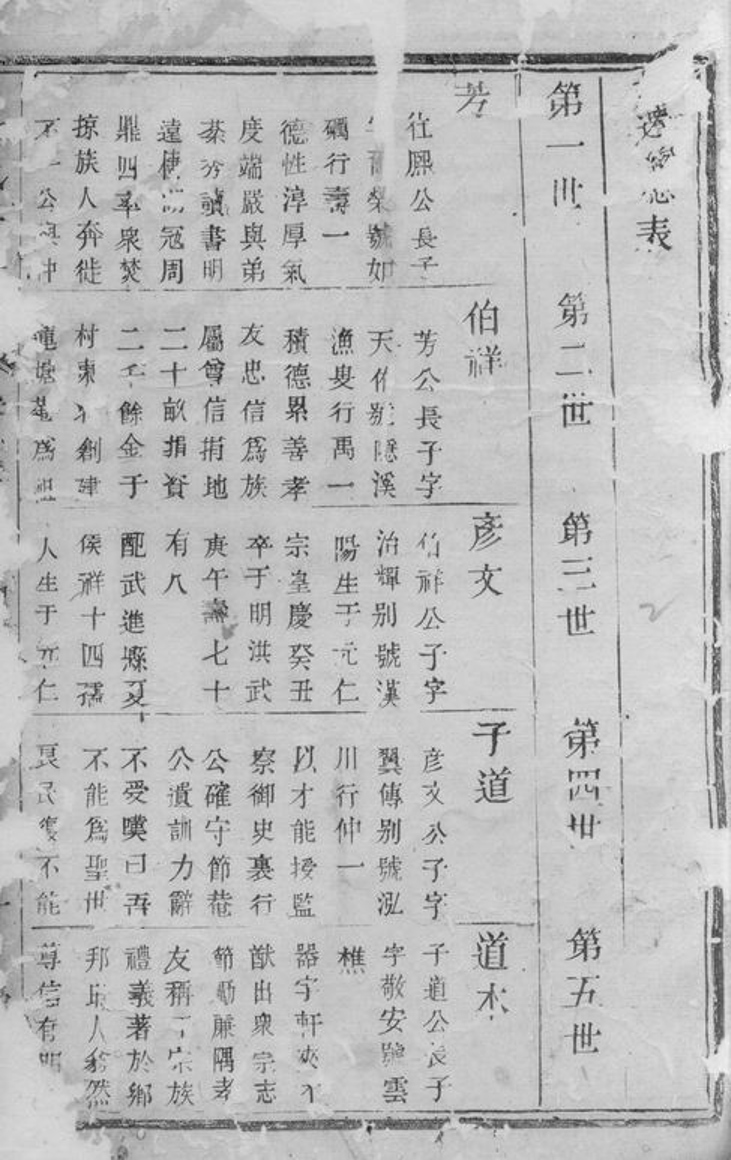 表
第一世
第二世
第三世
第四世
第五世
芳
熙公長子
榮號如
行壽一
德性淳厚氣
度端嚴與弟
芬讀書明
遠 冠周
鼎四率衆焚
掠族人奔徙
不 公
伯祥
芳公長子字
天佑號隱溪
漁叟行禹一
積德累善孝
友忠信爲族
屬尊信捐地
二十畝捐資
二千餘金于
村東 創建
爲
彥文
伯祥公子字
治輝别號漢
陽生于元仁
宗皇慶癸丑
卒于明洪武
庚午壽七十
有八
配武進縣夏
侯祥十四孺
人生于元仁
子道
彥文公子字
翼傳别號泓
川行仲一
以才能授監
察御史裏行
公確守節菴
公遺訓力辭
不受嘆曰吾
不能爲聖世
良民隻不能
道本
子道公長子
字敬安號雲
樵
器宇軒
猷出衆宗志
節勵廉隅孝
友稱于宗族
禮義著於鄉
邦 人翕然
尊信有